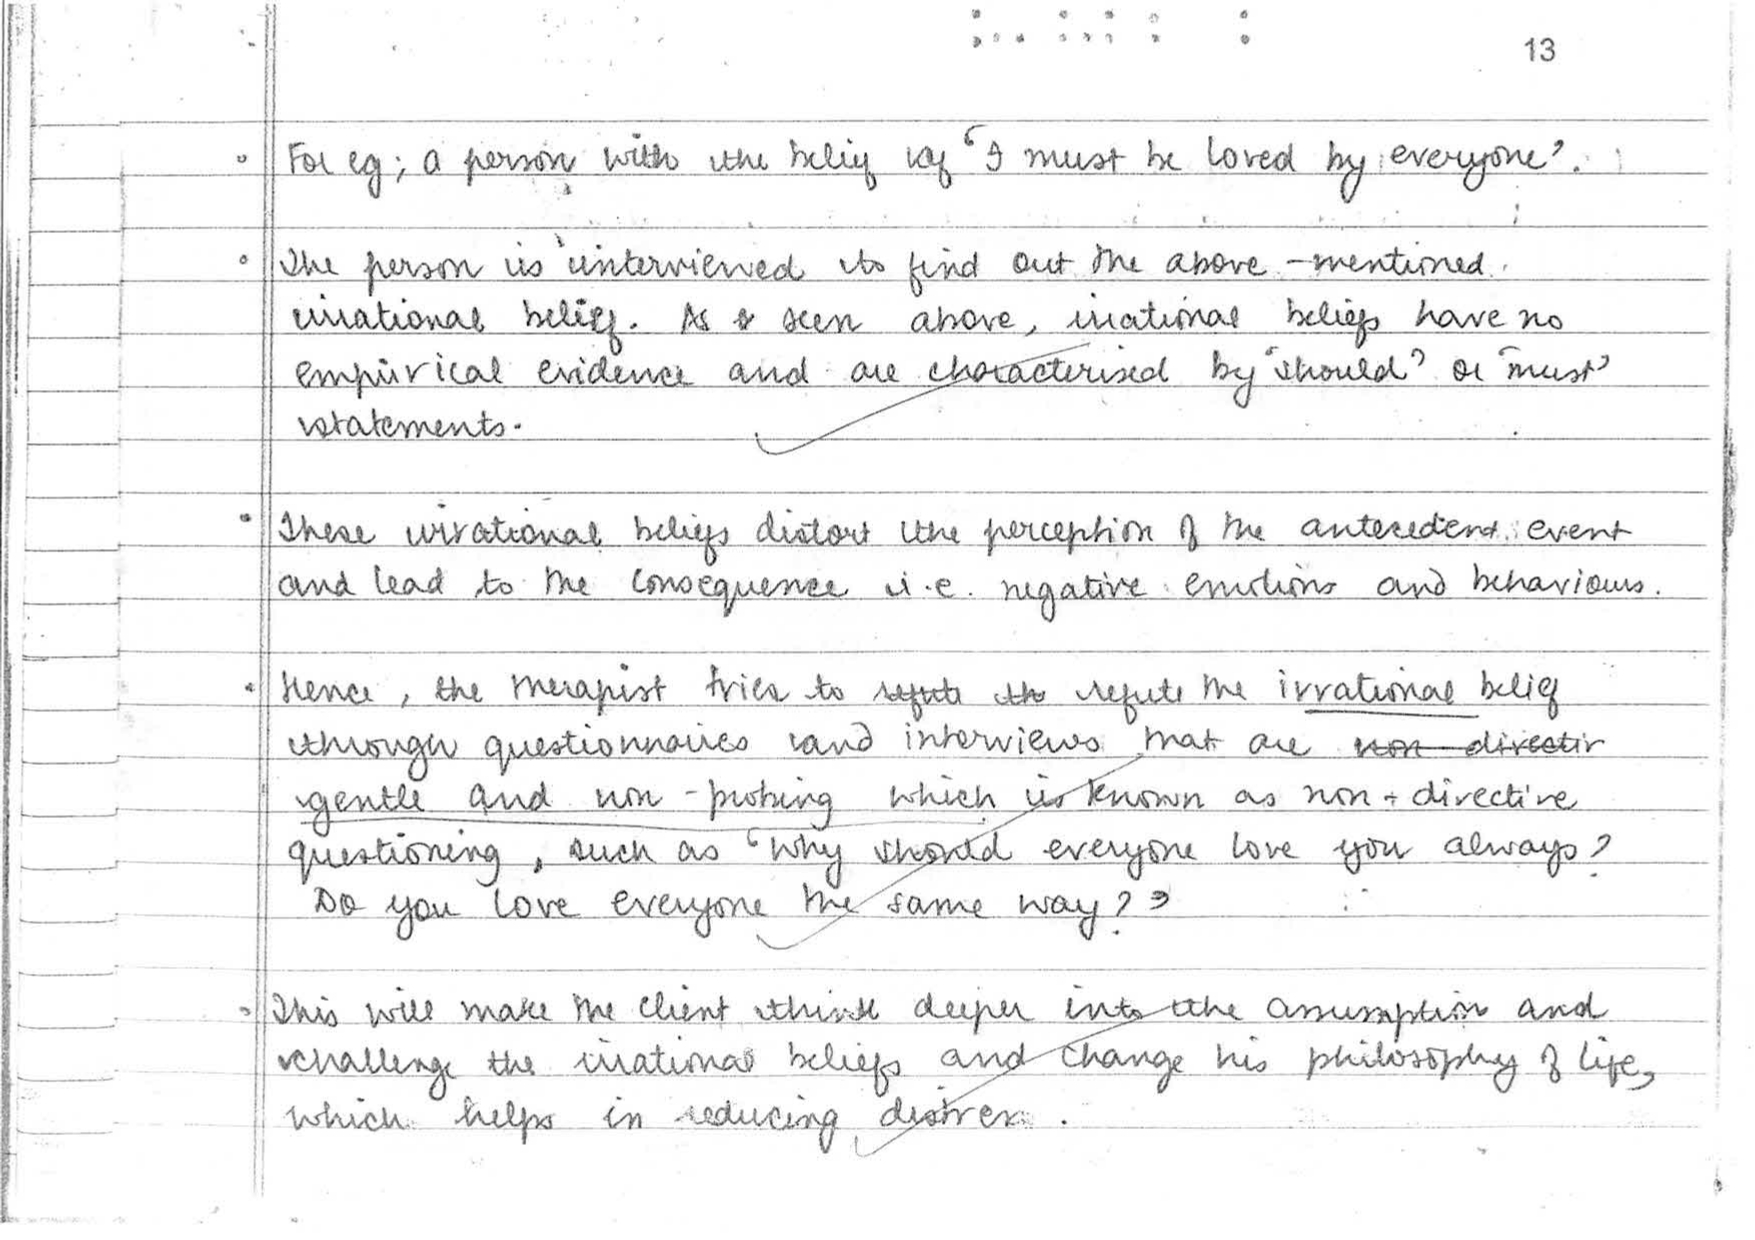 13
• For eg; a person with the belief of 'I must be loved by everyone'.
• The person is interviewed to find out the above-mentioned
irrational belief. As seen above, irrational beliefs have no
empirical evidence and are characterised by 'should' or 'must'
statements.
• These irrational beliefs distort the perception of the antecedent event
and lead to the consequence i.e. negative emotions and behaviours.
• Hence, the therapist tries to refute the refute the irrational belief
through questionnaires and interviews that are non-directiv
gentle and non-probing which is known as non-directive
questioning, such as 'Why should everyone love you always?
Do you love everyone the same way?'
• This will make the client think deeper into the assumption and
challenge the irrational beliefs and change his philosophy of life,
which helps in reducing distress.